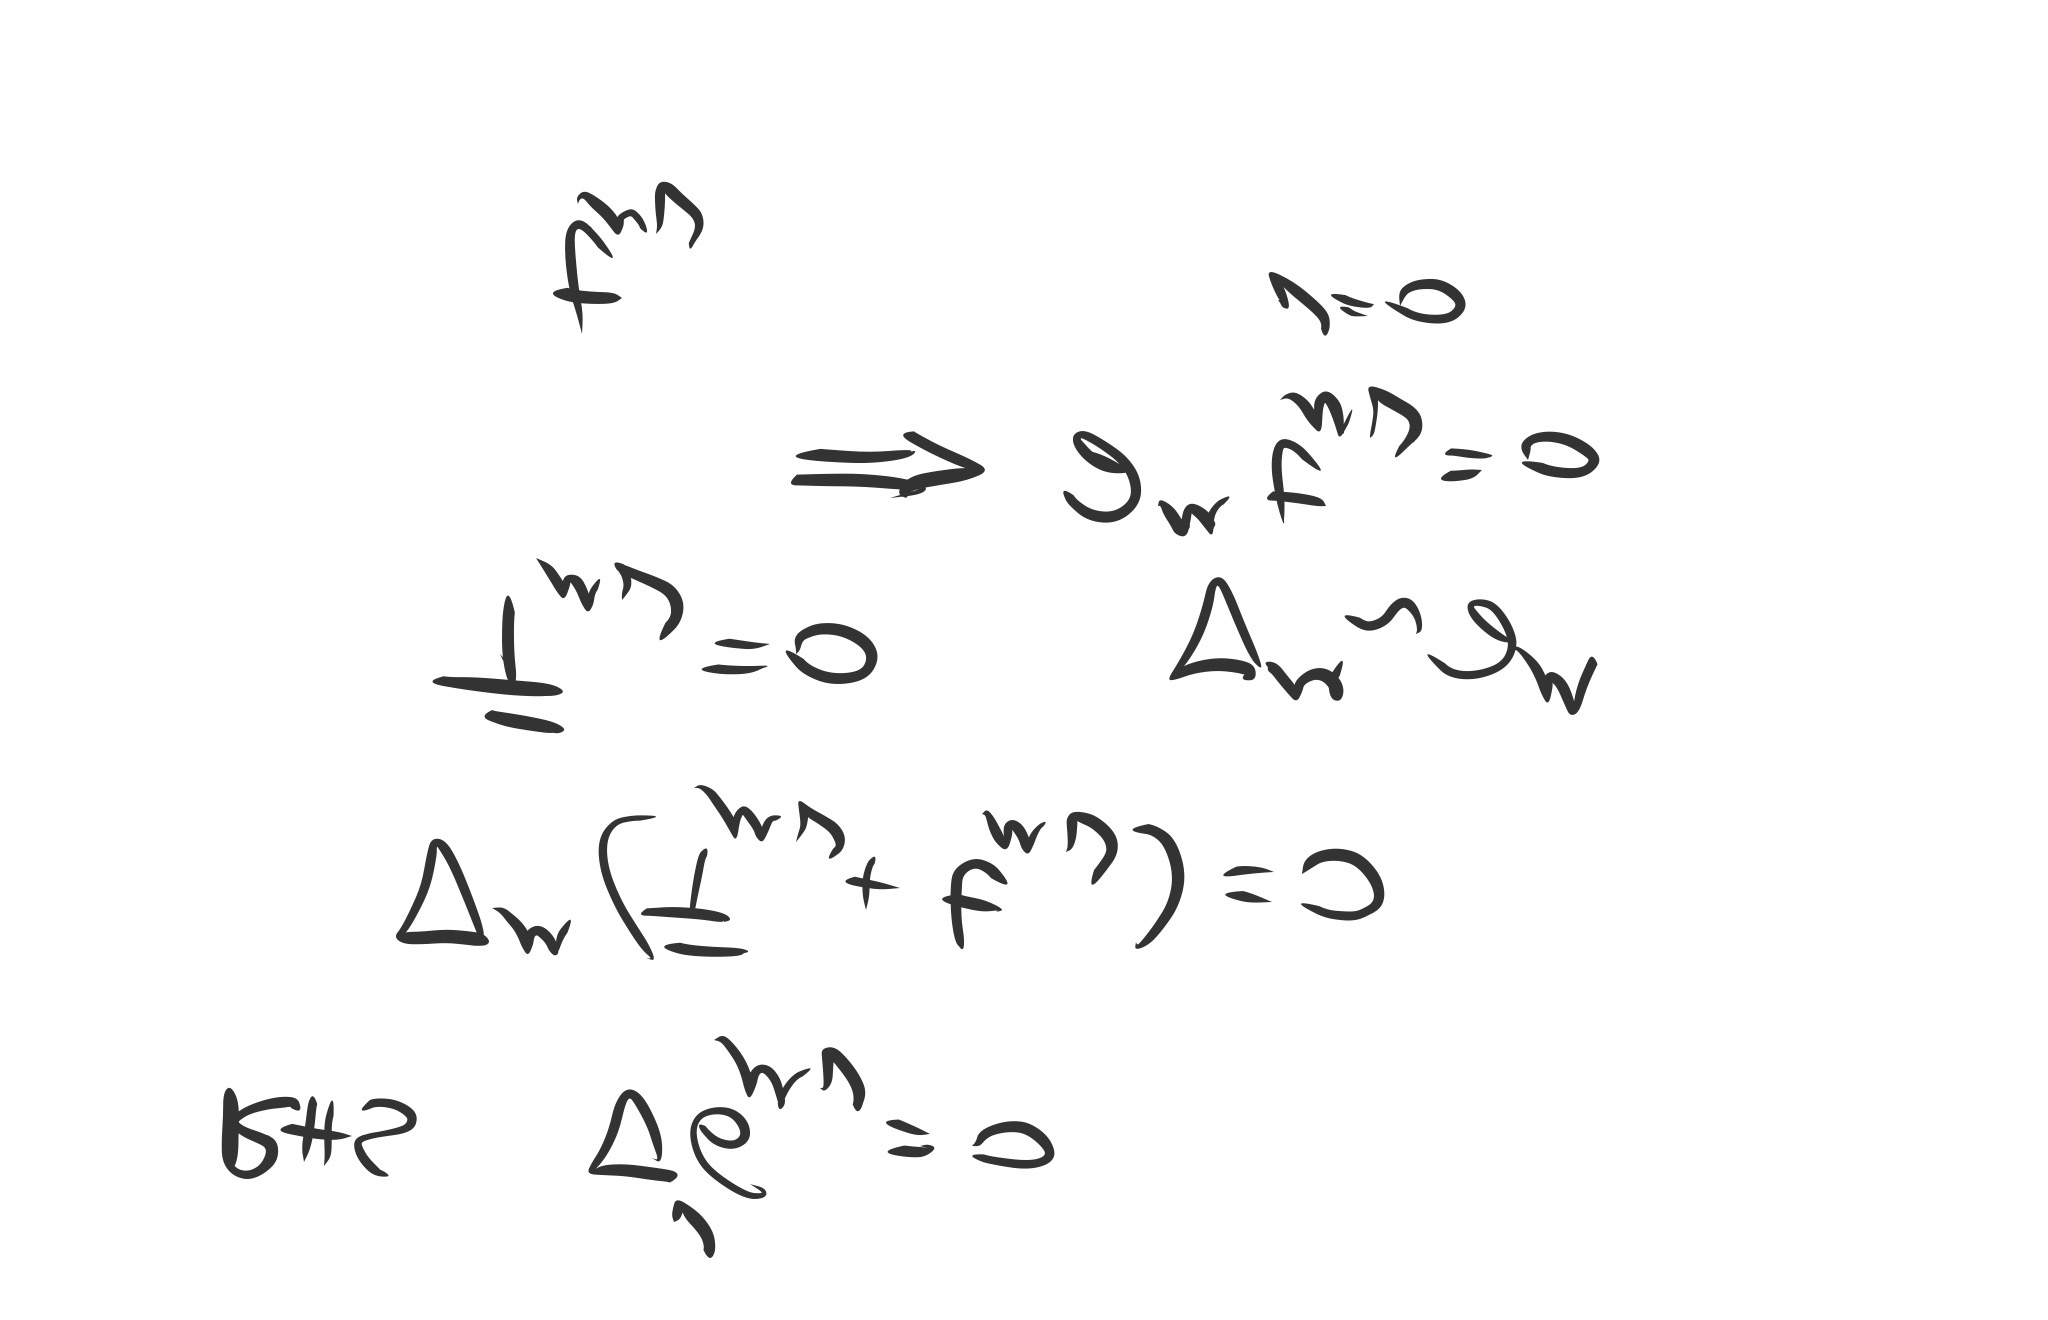 RHS ∇^ν G_μν = 0
∇^μ (T̄_μν + t_μν) = 0
T̄_μν = 0 ∇^μ ~ ∂^μ
⇒ ∂^μ t_μν = 0
t_μν ν = 0